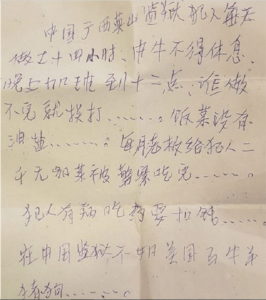 中国广西英山监狱犯人每天
做工十四小时、中午不得休息、
晚上加班到十二点、谁做
不完就挨打……饭菜没有
油盐……每月老板给犯人二
千元加菜被警察吃完……
犯人有病吃药要扣钱……
在中国监狱不如美国马牛羊
猪狗……